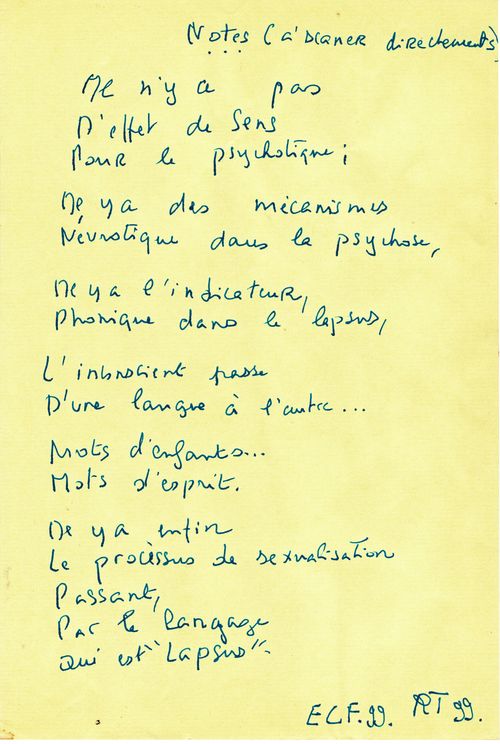 Notes (à scaner directements)
Il n'y a pas
D'effet de Sens
Pour le psychotique;
Il y a des mécanismes
Névrotique dans la psychose,
Il y a l'indicateur,
Phonique dans le lapsus,
L'inconscient passe
D'une langue à l'autre...
Mots d'enfants...
Mots d'esprit.
Il y a enfin
Le procèssus de sexualisation
Passant,
Par le langage
Qui est "Lapsus".
E.C.F.99. RT 99.